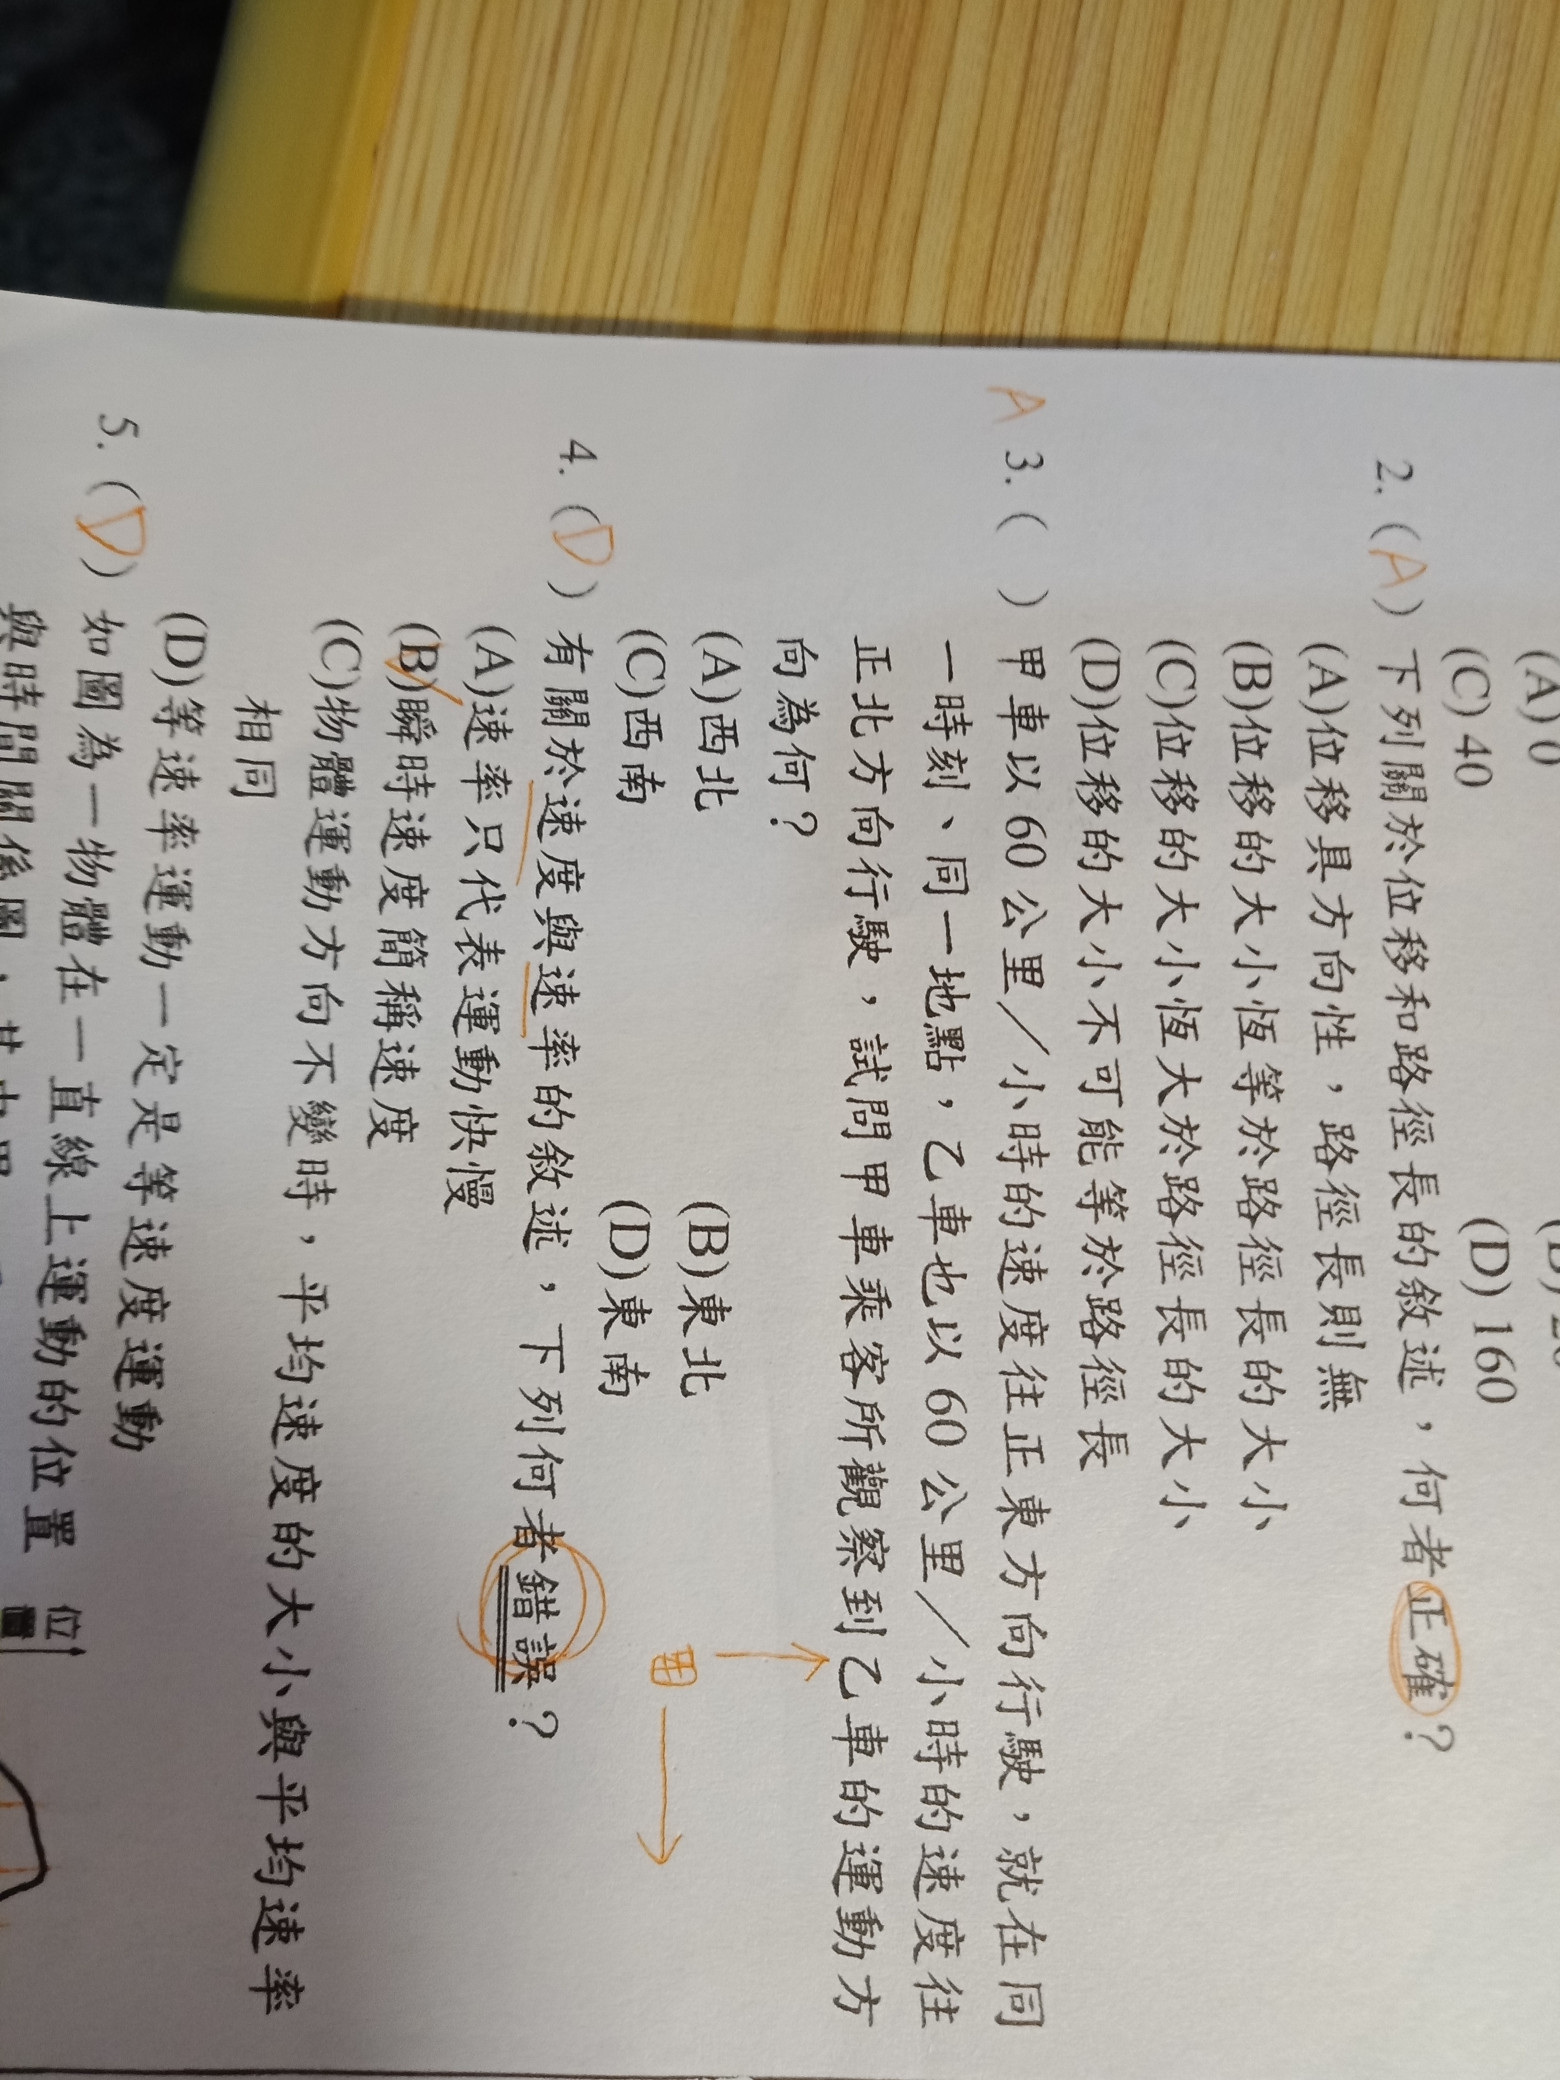 (A) 0
(C) 40 (D) 160
2. (A) 下列關於位移和路徑長的敘述，何者正確？
(A)位移具方向性，路徑長則無
(B)位移的大小恆等於路徑長的大小
(C)位移的大小恆大於路徑長的大小
(D)位移的大小不可能等於路徑長
A 3. ( ) 甲車以 60 公里／小時的速度往正東方向行駛，就在同
一時刻、同一地點，乙車也以 60 公里／小時的速度往
正北方向行駛，試問甲車乘客所觀察到乙車的運動方
向為何？
(A)西北 (B)東北
(C)西南 (D)東南
甲
4. (D) 有關於速度與速率的敘述，下列何者錯誤？
(A)速率只代表運動快慢
(B)瞬時速度簡稱速度
(C)物體運動方向不變時，平均速度的大小與平均速率
相同
(D)等速率運動一定是等速度運動
5. (D) 如圖為一物體在一直線上運動的位置
與時間關係圖，其中
位
置